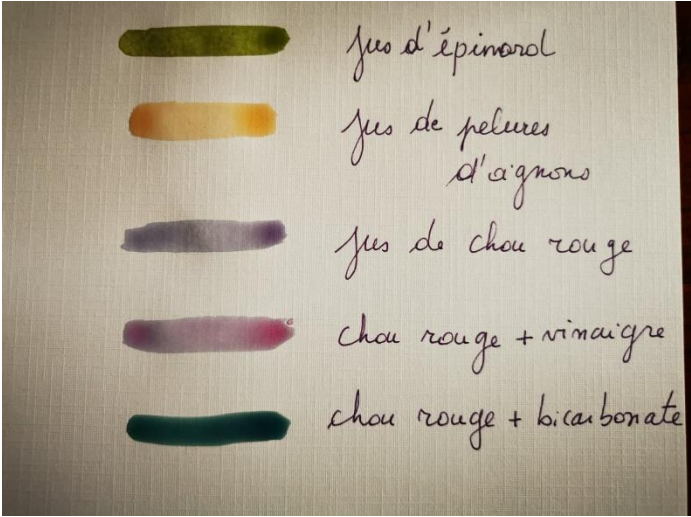 jus d'épinard
jus de pelures
d'oignons
jus de chou rouge
chou rouge + vinaigre
chou rouge + bicarbonate